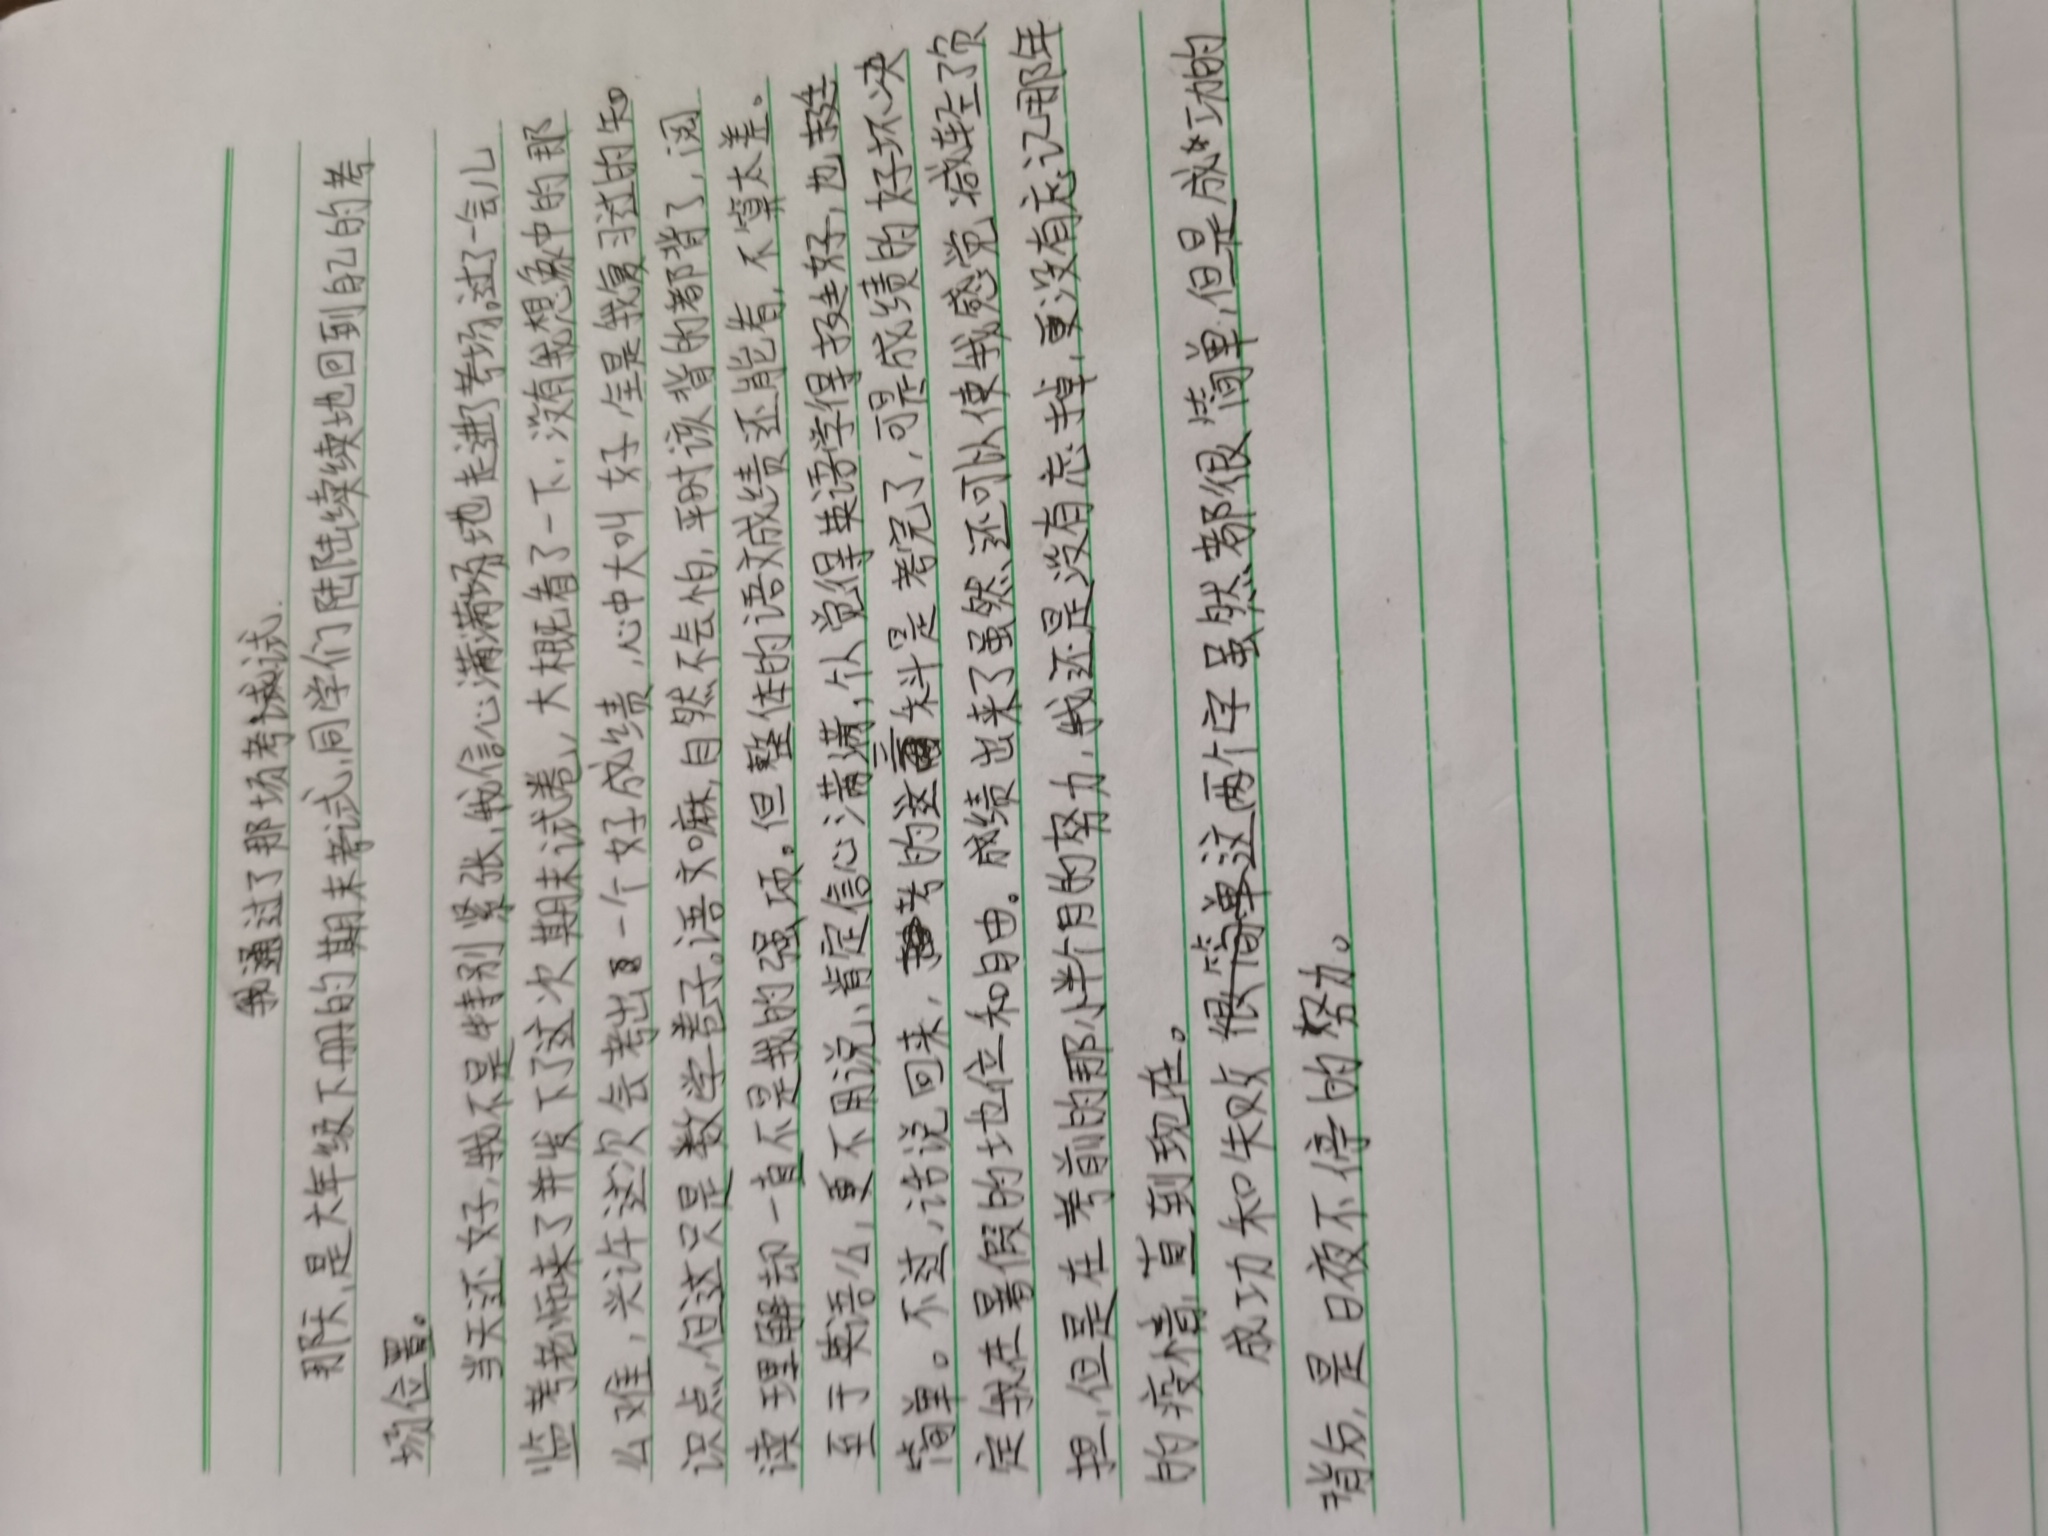 我通过了那场考试
那天,是六年级下册的期末考试,同学们陆陆续续地回到自己的考
场位置。
当天还好,我不是特别紧张,我信心满满地走进了考场。过了一会儿
监考老师来了并发下了这次期末试卷,大概看了一下,没有我想象中的那
么难,兴许这次会考出一个好成绩,心中大叫好,全是我复习过的知
识点,但这只是数学卷子。语文嘛,自然不会怕,平时该背的都背了,阅
读理解却一直不是我的强项。但整体的语文成绩还能看,不算太差。
至于英语么,更不用说,肯定信心满满,个人觉得英语学得挺好,也挺
简单。不过,话说回来,考的这三科是考完了,可是成绩的好坏决
定我在暑假的地位和自由。成绩出来了虽然还可以使我感觉减轻了负
担,但是在考前的那小半个月的努力,我还是没有忘掉,更没有忘记那年
的疫情,直到现在。
成功和失败 这两个字虽然都很简单,但是成功的
背后,是日夜不停的努力。